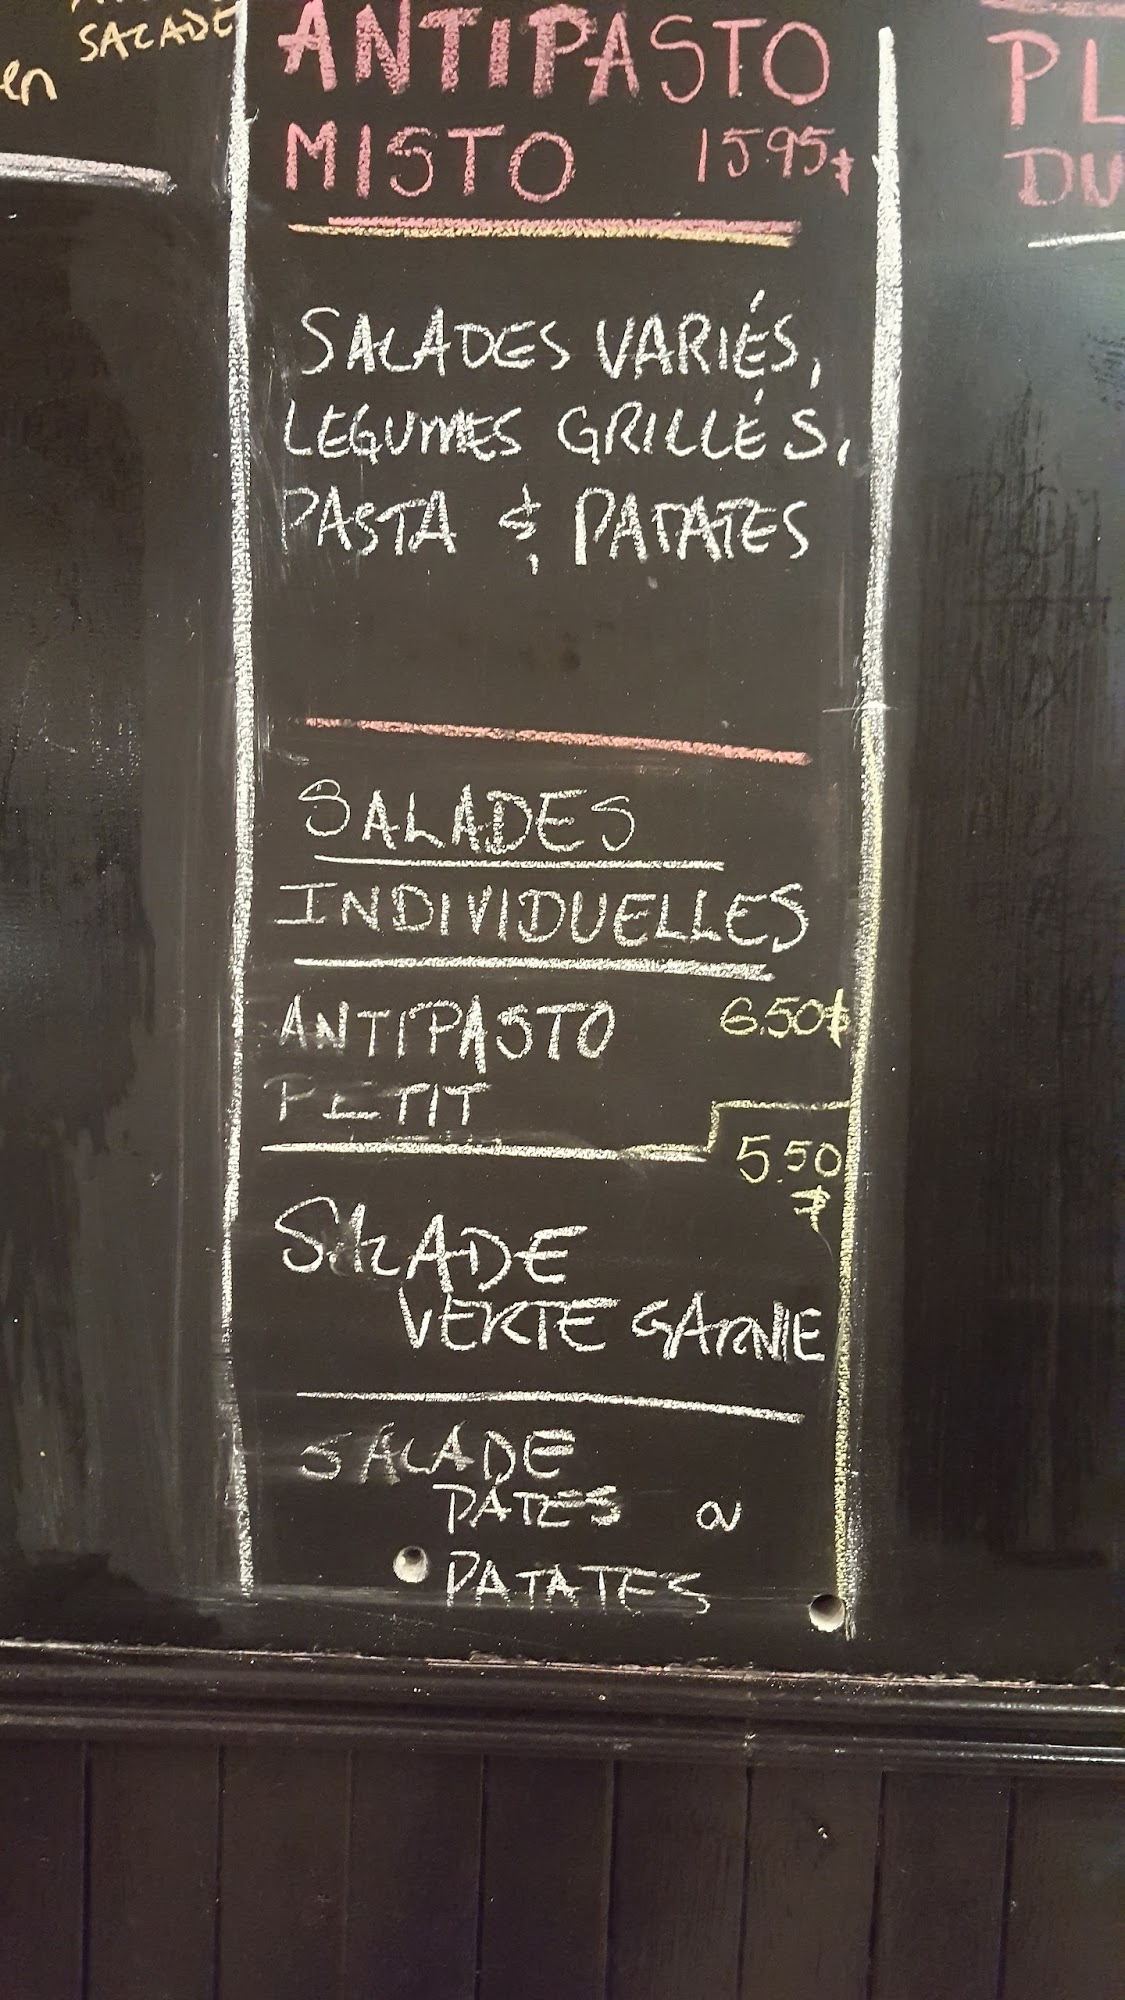 SALADE
en
ANTIPASTO
MISTO 15.95$
SALADES VARIÉS,
LEGUMES GRILLÉS,
PASTA & PATATES
SALADES
INDIVIDUELLES
ANTIPASTO 6.50$
PETIT
5.50
$
SALADE
VERTE GARNIE
SALADE
PATES OU
PATATES
PL
DU